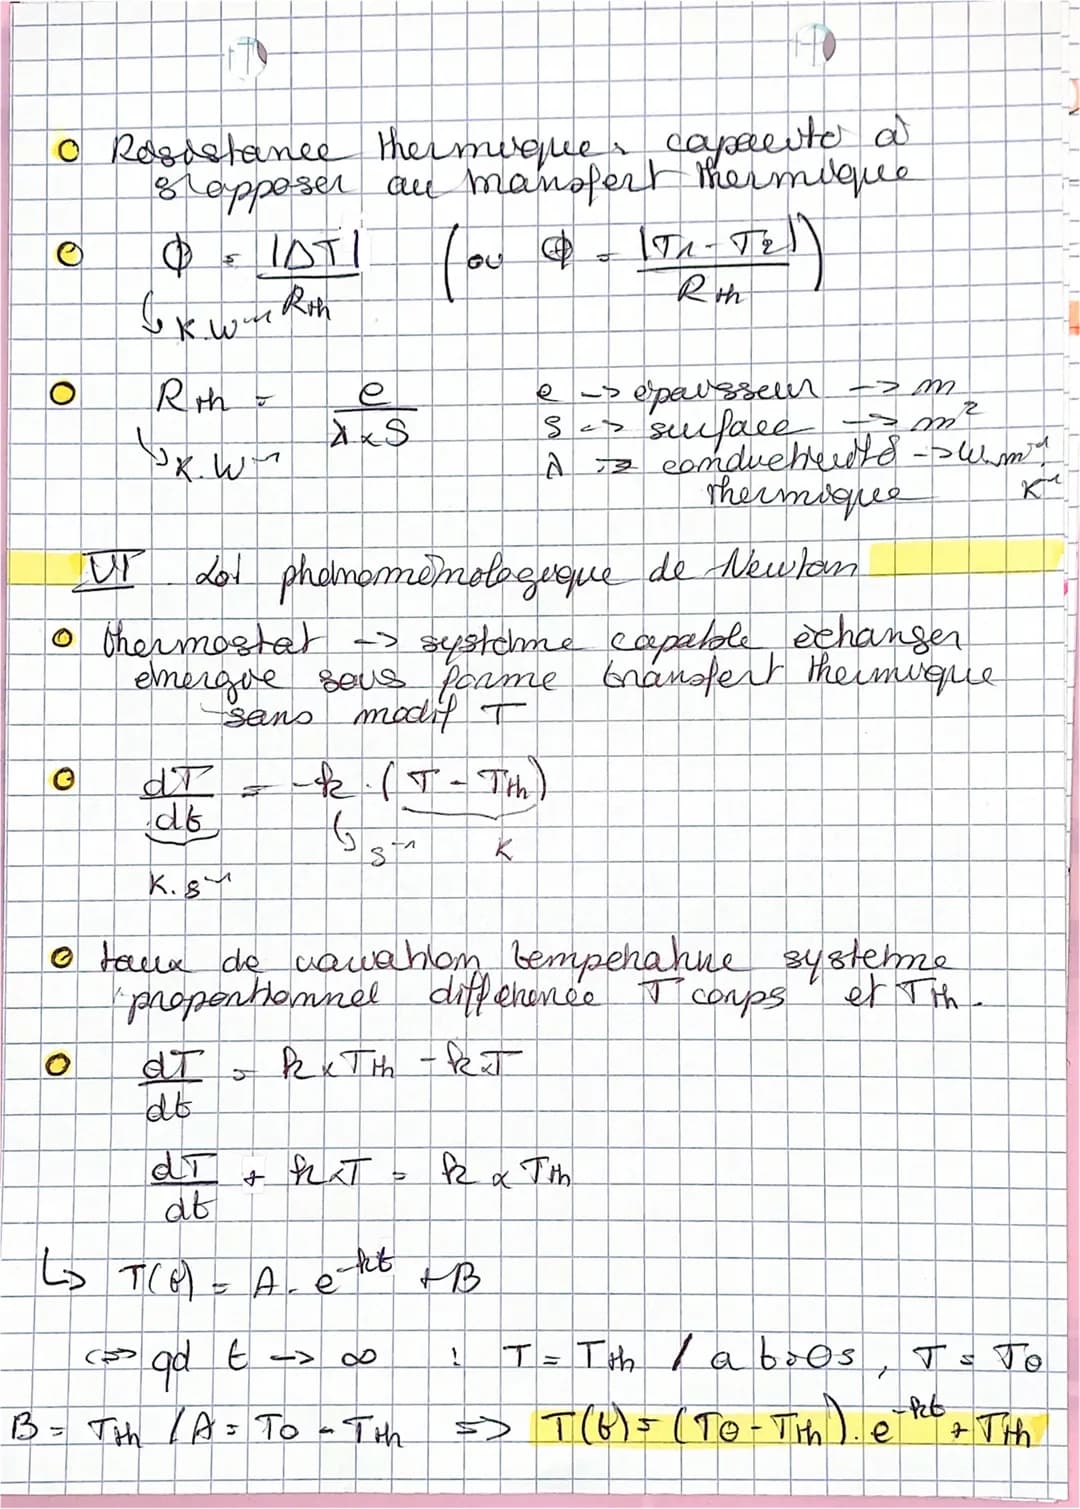 Résistance thermique : capacité à
s'opposer au transfert thermique
Φ = |ΔT| / Rth (ou Φ = |T1 - T2| / Rth)
↳ K.W⁻¹
Rth = e / λ×S
↳ K.W⁻¹
e -> épaisseur -> m
S -> surface -> m²
λ -> conductivité -> W.m⁻¹.
thermique K⁻¹
VI Loi phénoménologique de Newton
thermostat -> système capable échanger
énergie sous forme transfert thermique
sans modif T
dT/dt = -k.(T - Tth)
↳ s⁻¹ K
K.s⁻¹
taux de variation température système
proportionnel différence T corps et Tth.
dT/dt = k×Tth - k×T
dT/dt + k×T = k × Tth
↳ T(t) = A.e^-kt + B
<=> qd t -> ∞ : T = Tth / à t=0s, T = T0
B = Tth / A = T0 - Tth => T(t) = (T0 - Tth).e^-kt + Tth